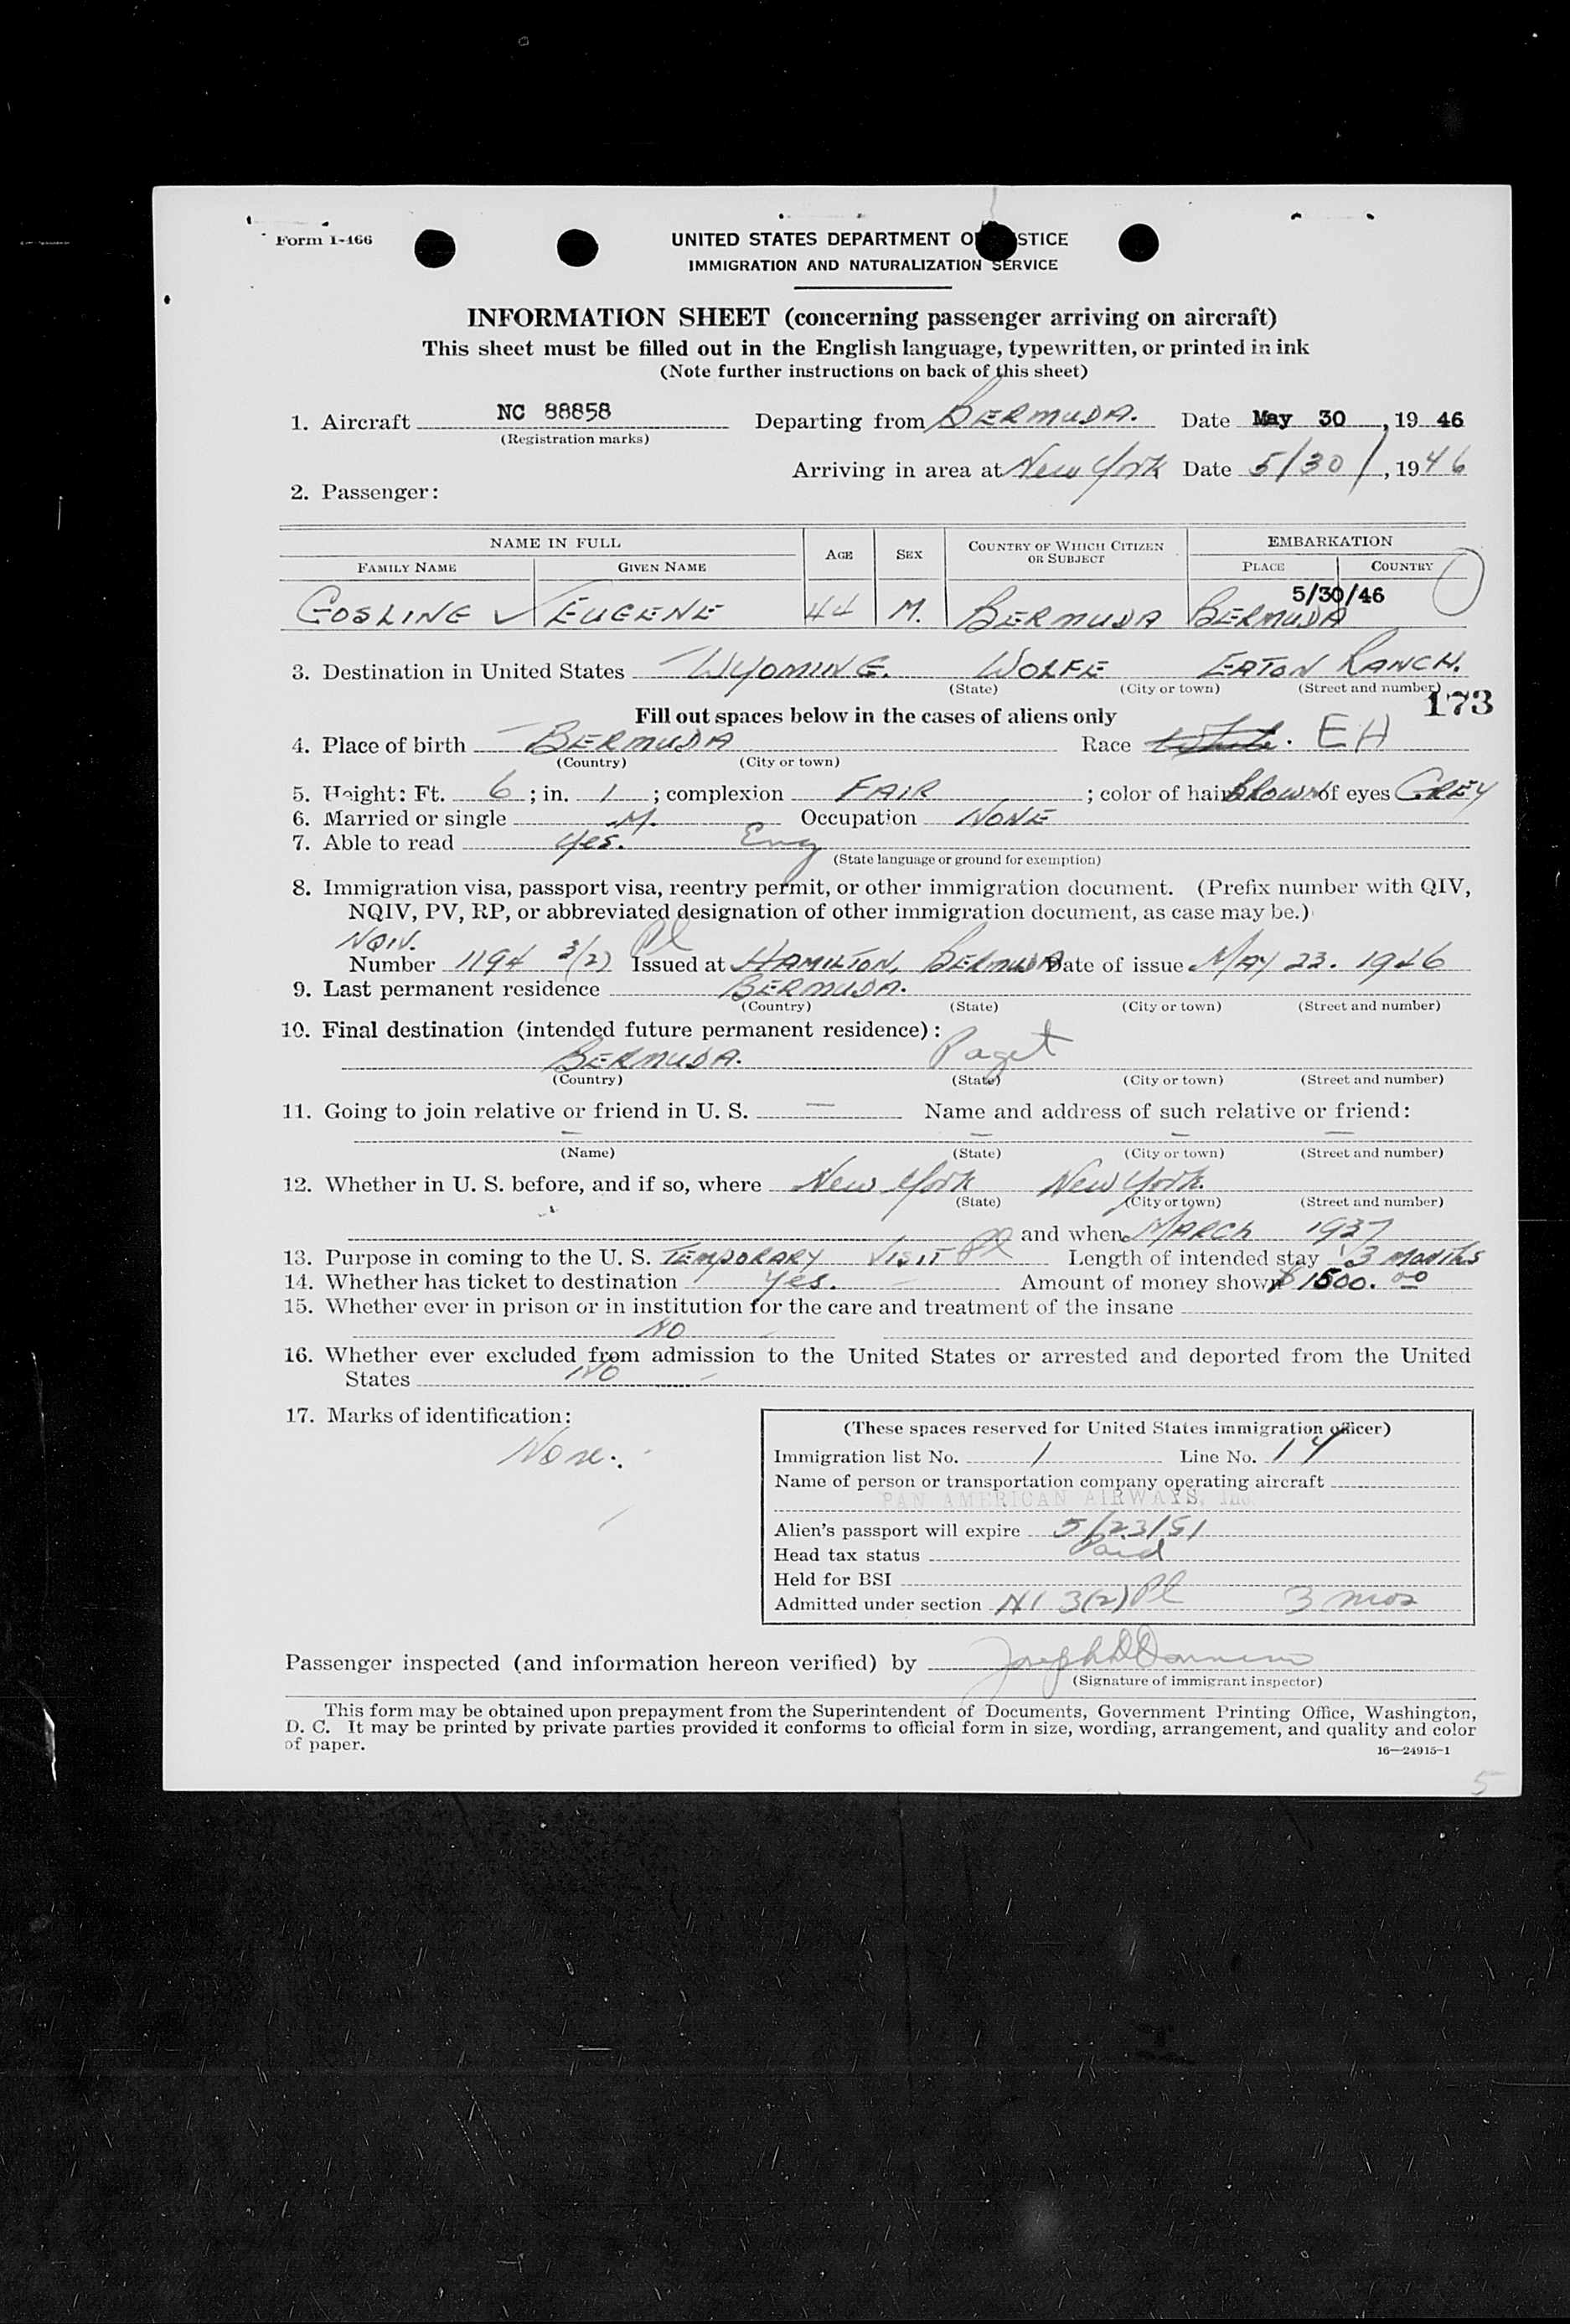 Form I-466
UNITED STATES DEPARTMENT OF JUSTICE
IMMIGRATION AND NATURALIZATION SERVICE
INFORMATION SHEET (concerning passenger arriving on aircraft)
This sheet must be filled out in the English language, typewritten, or printed in ink
(Note further instructions on back of this sheet)
1. Aircraft NC 88858 Departing from BERMUDA. Date May 30, 19 46
(Registration marks)
Arriving in area at New York Date 5/30/, 19 46
2. Passenger:
NAME IN FULL AGE SEX COUNTRY OF WHICH CITIZEN OR SUBJECT EMBARKATION
FAMILY NAME GIVEN NAME PLACE COUNTRY
5/30/46
GOSLING ✓ EUGENE 44 M. BERMUDA BERMUDA
3. Destination in United States WYOMING. WOLFE EATON RANCH.
(State) (City or town) (Street and number)
173
Fill out spaces below in the cases of aliens only
4. Place of birth BERMUDA Race White. EH
(Country) (City or town)
5. Height: Ft. 6; in. 1; complexion FAIR; color of hair BROWN of eyes GREY
6. Married or single M. Occupation NONE
7. Able to read Yes. Eng
(State language or ground for exemption)
8. Immigration visa, passport visa, reentry permit, or other immigration document. (Prefix number with QIV,
NQIV, PV, RP, or abbreviated designation of other immigration document, as case may be.)
NQIV.
Number 1194 3/(2) Pl Issued at HAMILTON, BERMUDA Date of issue MAY 23. 1946
9. Last permanent residence BERMUDA.
(Country) (State) (City or town) (Street and number)
10. Final destination (intended future permanent residence):
BERMUDA. Paget
(Country) (State) (City or town) (Street and number)
11. Going to join relative or friend in U. S. — Name and address of such relative or friend:
— — — —
(Name) (State) (City or town) (Street and number)
12. Whether in U. S. before, and if so, where New York New York.
(State) (City or town) (Street and number)
and when MARCH 1937
13. Purpose in coming to the U. S. TEMPORARY VISIT Pl Length of intended stay 3 MONTHS
14. Whether has ticket to destination Yes. Amount of money shown $1500.00
15. Whether ever in prison or in institution for the care and treatment of the insane
NO
16. Whether ever excluded from admission to the United States or arrested and deported from the United
States NO
17. Marks of identification:
None.
(These spaces reserved for United States immigration officer)
Immigration list No. 1 Line No. 14
Name of person or transportation company operating aircraft
PAN AMERICAN AIRWAYS, Inc.
Alien's passport will expire 5/23/51
Head tax status Paid
Held for BSI
Admitted under section 3(2) Pl 3 mos
Passenger inspected (and information hereon verified) by
(Signature of immigrant inspector)
This form may be obtained upon prepayment from the Superintendent of Documents, Government Printing Office, Washington,
D. C. It may be printed by private parties provided it conforms to official form in size, wording, arrangement, and quality and color
of paper.
16—24915-1
5